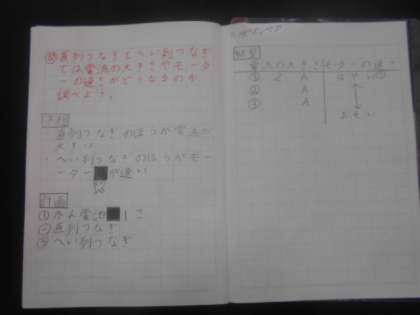 直列つなぎとへい列つなぎ
では電流の大きさやモータ
ーの速さがどうなるのか
調べよう。
予想
直列つなぎのほうが電流が
大きい
・へい列つなぎのほうがモー
ターが速い
計画
①かん電池1こ
②直列つなぎ
③へい列つなぎ
結果
電流の大きさ モーターの速さ
① 2 A はやい
② A
③ A おそい